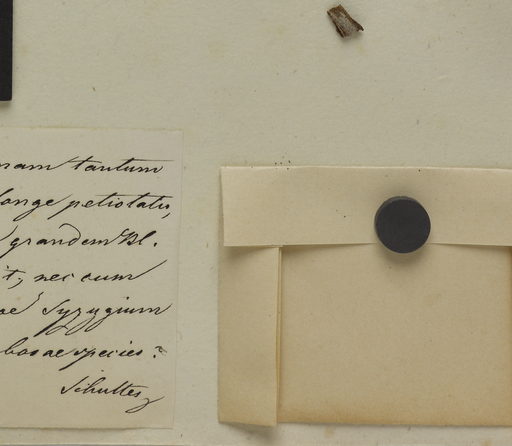 nam tantum
longe petiolatis,
grandem Bl.
it, nec cum
ae Syzygium
bosae species?
Schultes